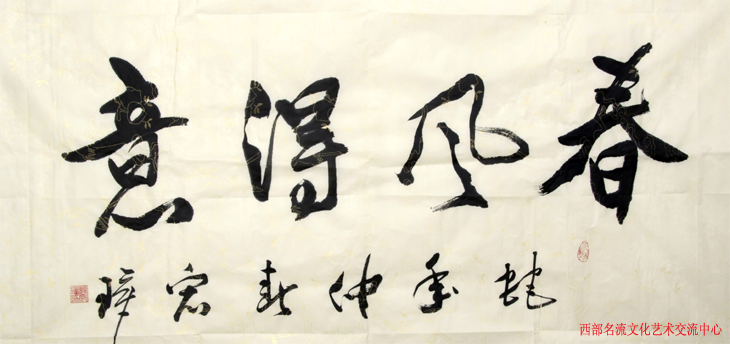 春风得意
蛇年仲春宏
西部名流文化艺术交流中心